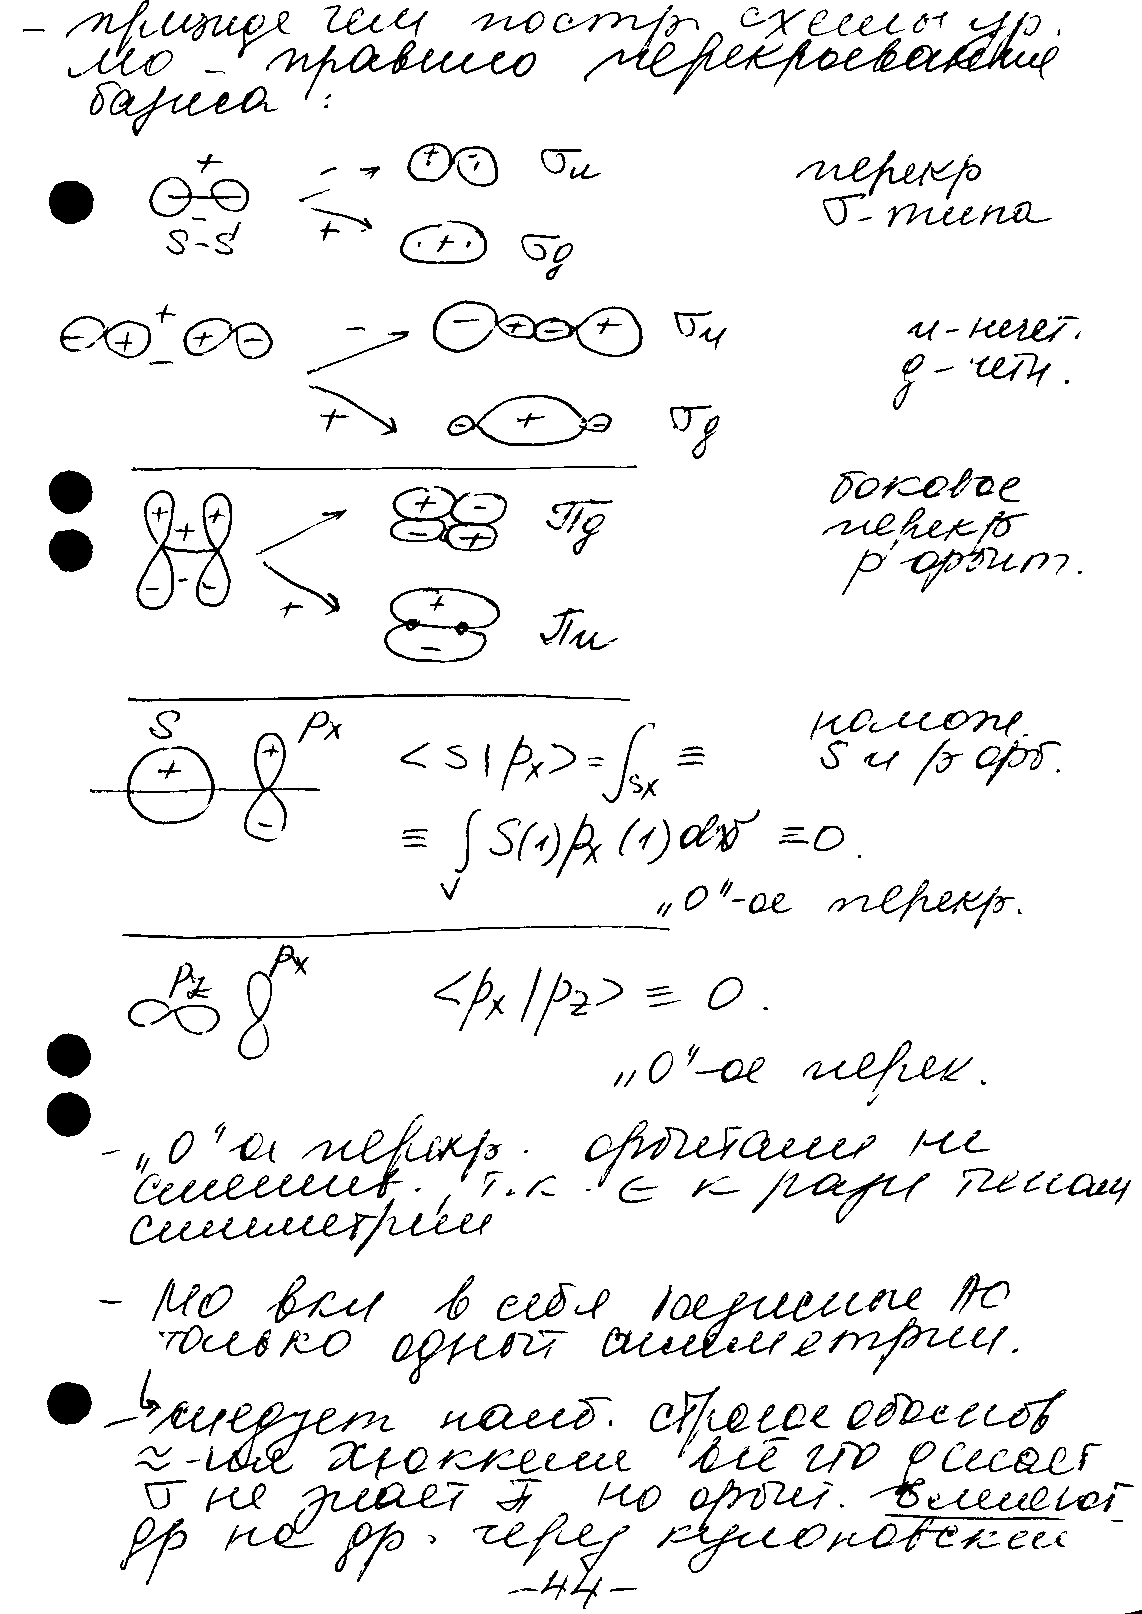 – прежде чем постр схемы ур.
МО – правило перекрывания
базиса :
+ – → + - σu перекр
– σ-типа
S-S + → . + . σg
- + + + - – → - + - + σu u - нечет.
– g – четн.
+ → - + - σg
+ + → + - Пg боковое
+ - + перекр
- - - + → + Пu p орбит.
-
S Px налож.
+ + <S|px> = ∫sx ≡ S и p орб.
- ≡ ∫v S(1)px(1)dτ ≡ 0.
„0"-ое перекр.
Pz Px <px|pz> ≡ 0.
„0"-ое перек.
- „0"ое перекр. орбитали не
смешив., т.к. ∈ к разн типам
симметрии
- МО вкл в себя базисные АО
только одной симметрии.
↳
– следует наиб. строгое обоснов
≈-ия Хюккеля всё что делает
σ не знает π но орбит. влияют
др на др. через кулоновский
–44–